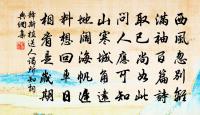 西風忽別解
滿篇詩
取已尚如此
問人應可知
山寒城角遠
地闊海帆遲
料想回車日
相看是歲期
釋斯植送人謁所知詞
典網集